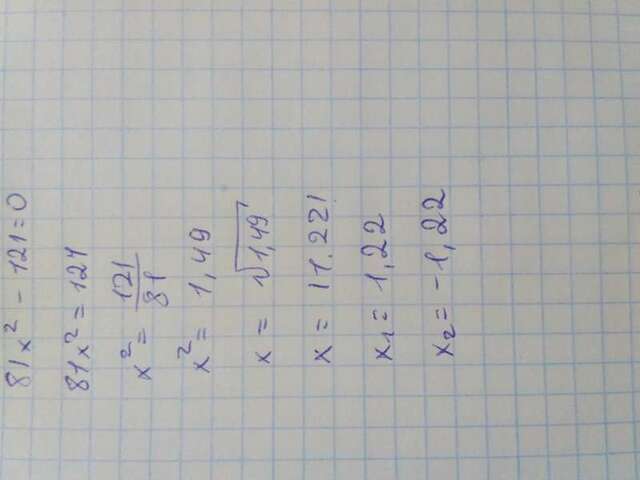 81x² - 121 = 0
81x² = 121
x² = 121/81
x² = 1,49
x = √1,49
x = |1.22|
x₁ = 1,22
x₂ = -1,22